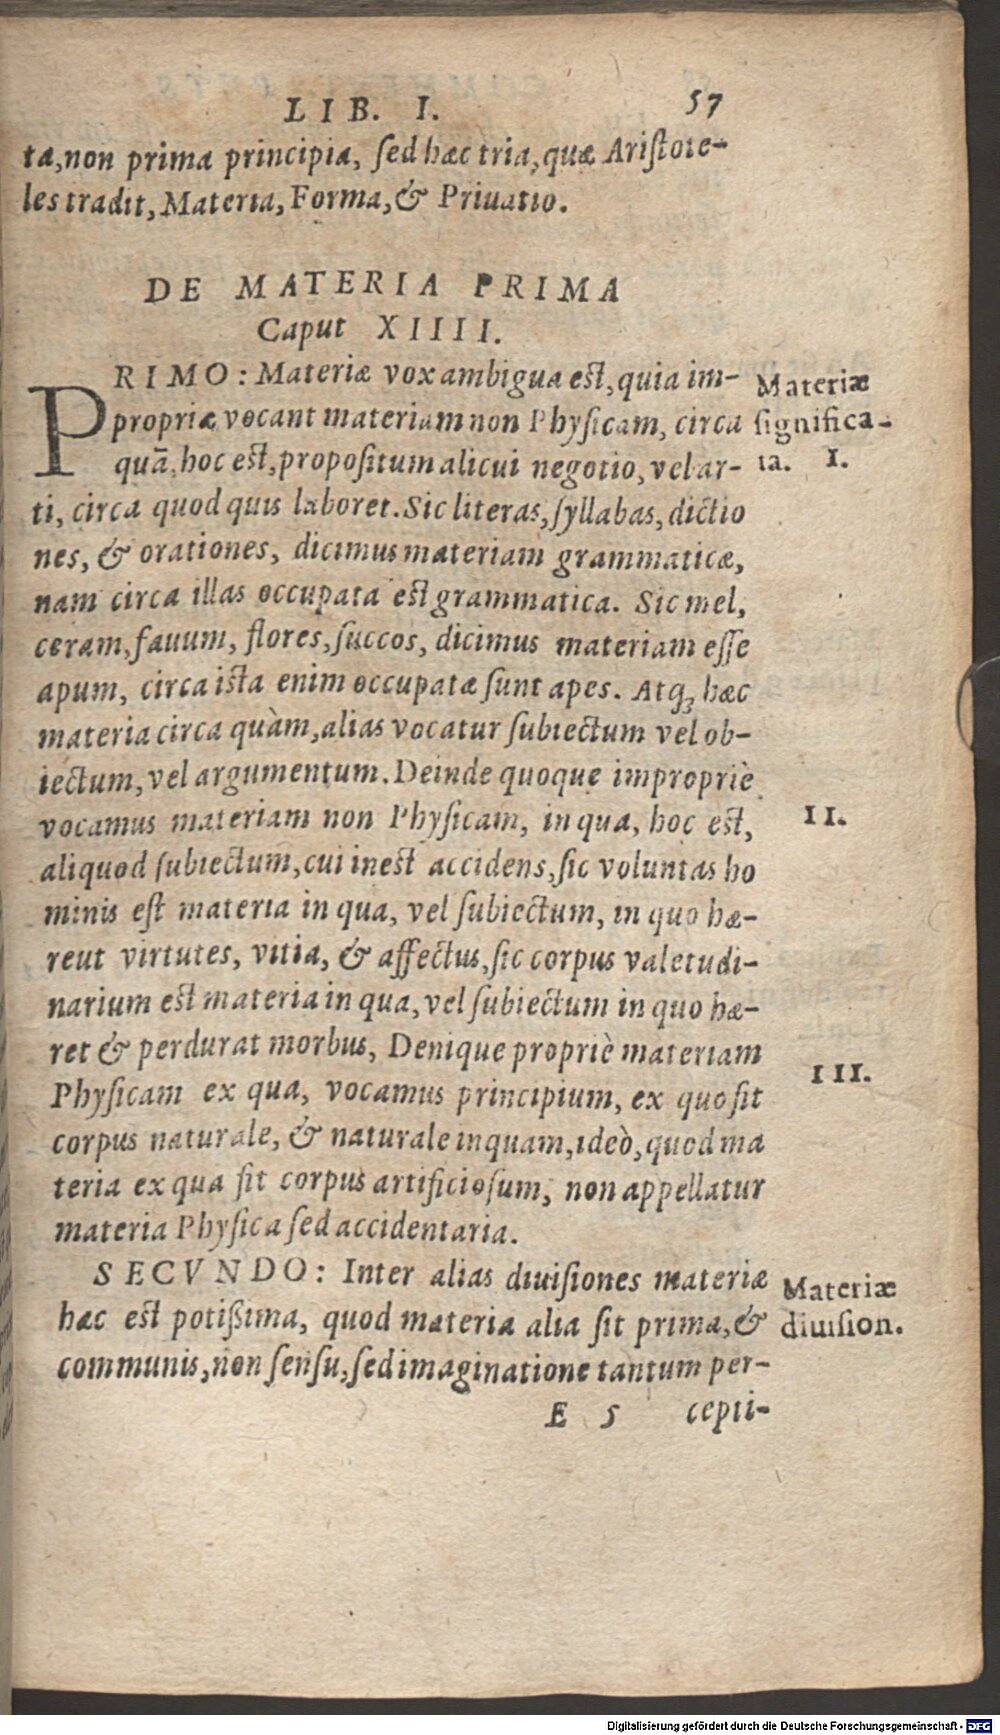 LIB. I. 57
ta, non prima principia, sed hæc tria, quæ Aristote-
les tradit, Materia, Forma, & Priuatio.
DE MATERIA PRIMA
Caput XIIII.
PRIMO: Materiæ vox ambigua est, quia im-
propriæ vocant materiam non Physicam, circa
quā, hoc est, propositum alicui negotio, vel ar-
ti, circa quod quis laboret. Sic literas, syllabas, dictio
nes, & orationes, dicimus materiam grammaticæ,
nam circa illas occupata est grammatica. Sic mel,
ceram, fauum, flores, succos, dicimus materiam esse
apum, circa ista enim occupatæ sunt apes. Atq; hæc
materia circa quàm, alias vocatur subiectum vel ob-
iectum, vel argumentum. Deinde quoque impropriè
vocamus materiam non Physicam, in qua, hoc est,
aliquod subiectum, cui inest accidens, sic voluntas ho
minis est materia in qua, vel subiectum, in quo hæ-
reut virtutes, vitia, & affectus, sic corpus valetudi-
narium est materia in qua, vel subiectum in quo hæ-
ret & perdurat morbus, Denique propriè materiam
Physicam ex qua, vocamus principium, ex quo sit
corpus naturale, & naturale inquam, ideò, quod ma
teria ex qua sit corpus artificiosum, non appellatur
materia Physica sed accidentaria.
SECVNDO: Inter alias diuisiones materiæ
hæc est potißima, quod materia alia sit prima, &
communis, non sensu, sed imaginatione tantum per-
E 5 cepti-
Materiæ
significa-
ta. I.
II.
III.
Materiæ
diuision.
Digitalisierung gefördert durch die Deutsche Forschungsgemeinschaft - DFG